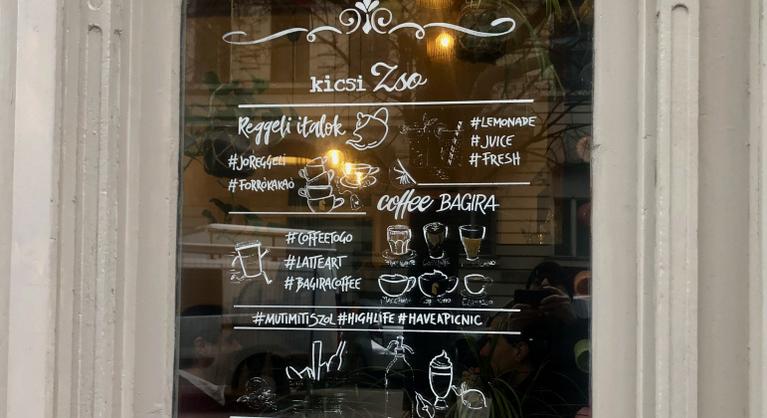 kicsi Zso
Reggeli italok
#LEMONADE
#JUICE
#FRESH
#JOREGGELI
#FORRÓKAKAÓ
coffee BAGIRA
#COFFEETOGO
#LATTEART
#BAGIRACOFFEE
#MUTIMITISZOL #HIGHLIFE #HAVEAPICNIC